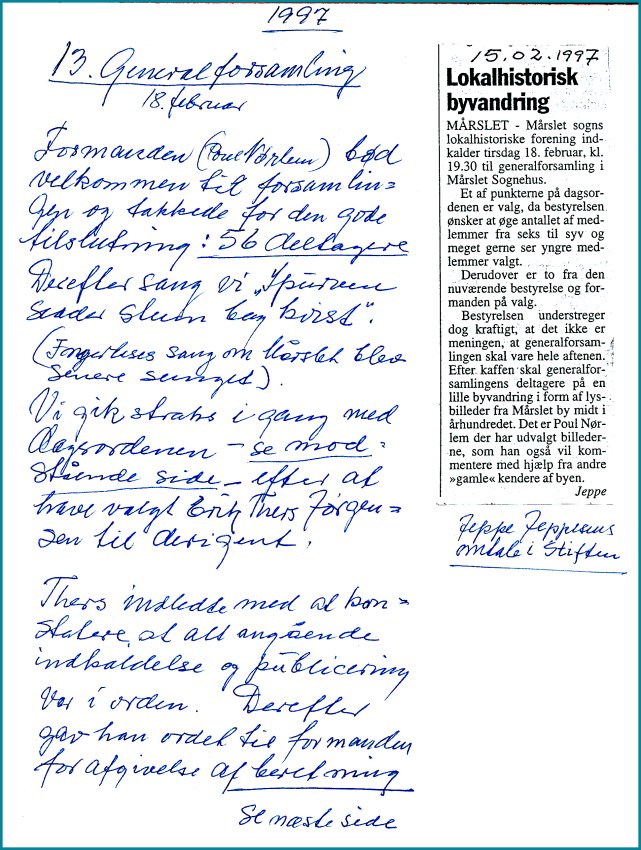 1997
13. Generalforsamling
18. februar
Formanden (Poul Nørlem) bød
velkommen til forsamlin=
gen og takkede for den gode
tilslutning: 56 deltagere
Derefter sang vi „Spurven
sidder stum bag kvist".
sang om Mårslet blev
senere sunget).
Vi gik straks i gang med
dagsordenen – se mod=
stående side – efter at
have valgt Erik Thers Jørgen=
sen til dirigent.
Thers indledte med at kon=
statere, at alt angående
indkaldelse og publicering
var i orden. Derefter
gav han ordet til formanden
for afgivelse af beretning
Se næste side
15.02.1997
Lokalhistorisk
byvandring
MÅRSLET - Mårslet sogns
lokalhistoriske forening ind-
kalder tirsdag 18. februar, kl.
19.30 til generalforsamling i
Mårslet Sognehus.
Et af punkterne på dagsor-
denen er valg, da bestyrelsen
ønsker at øge antallet af med-
lemmer fra seks til syv og
meget gerne ser yngre med-
lemmer valgt.
Derudover er to fra den
nuværende bestyrelse og for-
manden på valg.
Bestyrelsen understreger
dog kraftigt, at det ikke er
meningen, at generalforsam-
lingen skal vare hele aftenen.
Efter kaffen skal generalfor-
samlingens deltagere på en
lille byvandring i form af lys-
billeder fra Mårslet by midt i
århundredet. Det er Poul Nør-
lem der har udvalgt billeder-
ne, som han også vil kom-
mentere med hjælp fra andre
»gamle« kendere af byen.
Jeppe
Jeppe Jeppesens
omtale i Stiften